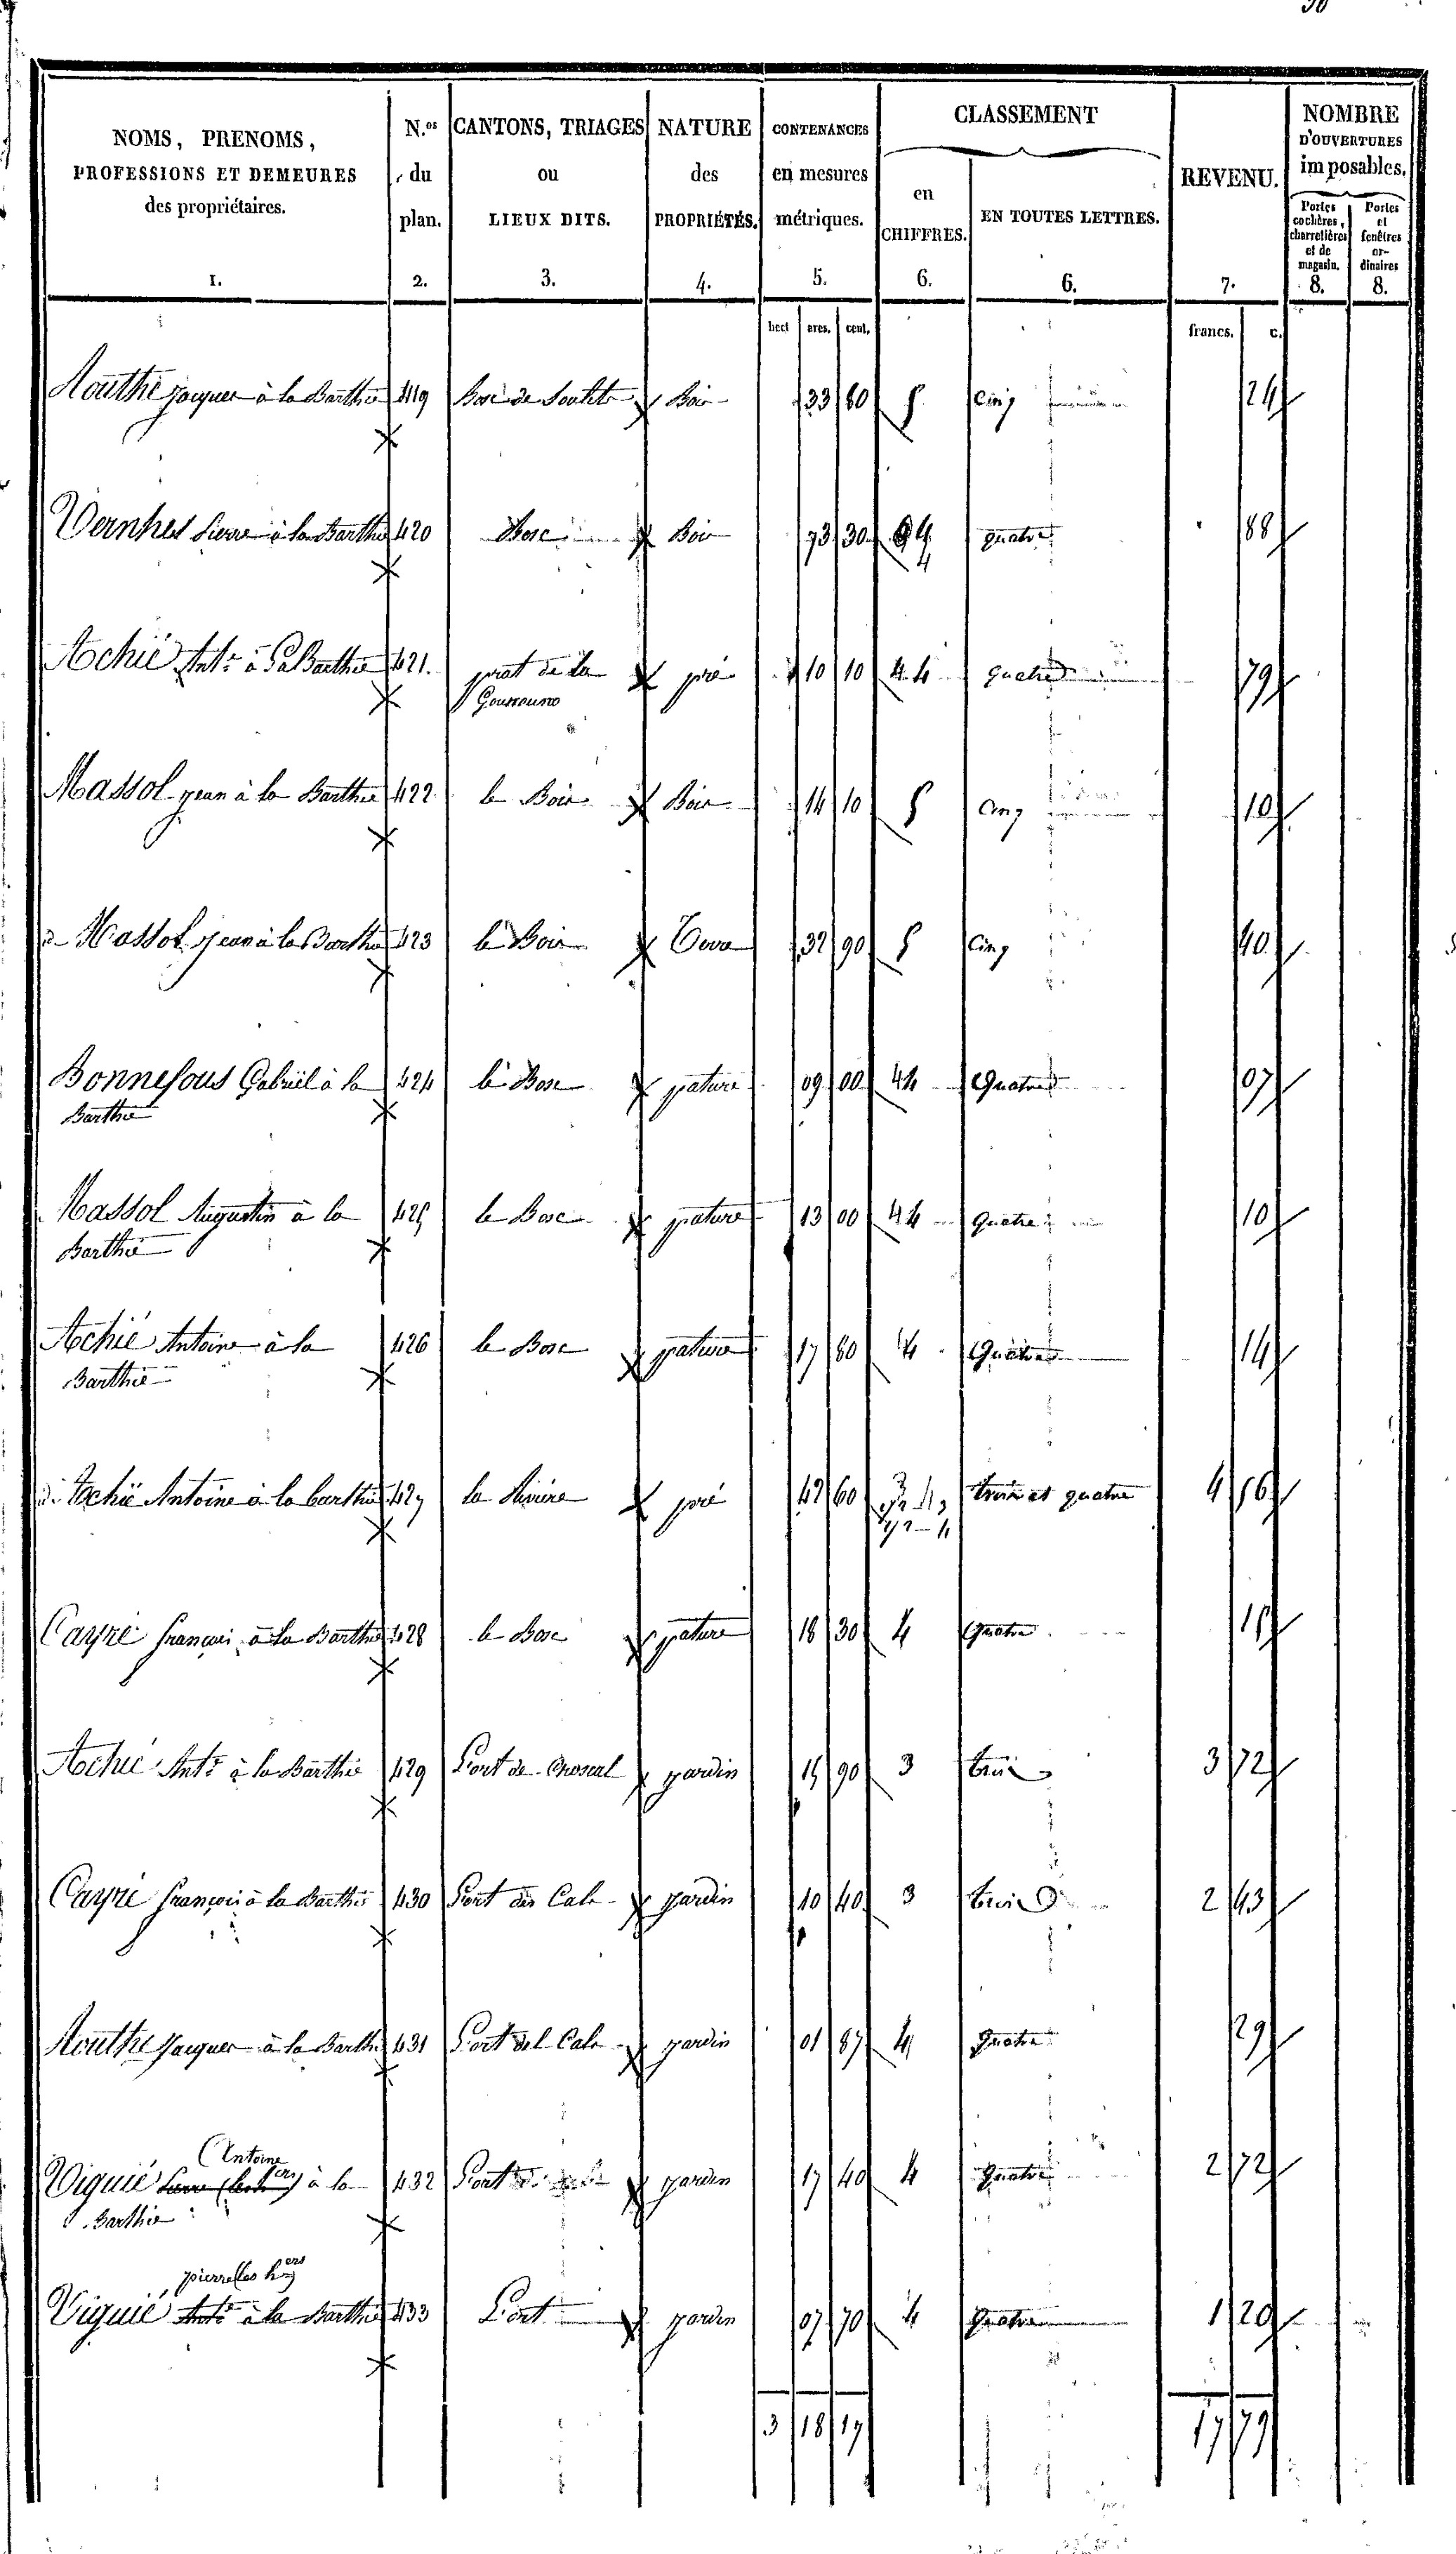 NOMS, PRENOMS, PROFESSIONS ET DEMEURES des propriétaires. 1.
N.os du plan. 2.
CANTONS, TRIAGES ou LIEUX DITS. 3.
NATURE des PROPRIÉTÉS. 4.
CONTENANCES en mesures métriques. 5.
CLASSEMENT
en CHIFFRES. 6.
EN TOUTES LETTRES. 6.
REVENU. 7.
NOMBRE D'OUVERTURES imposables.
Portes cochères, charretières et de magasin. 8.
Portes et fenêtres ordinaires 8.
hect ares. cent. francs. c.
jacques à la Barthe 419 Bosc de Bois 33 60 5 Cinq 24
Vernhes Pierre à la Barthe 420 Bosc Bois 73 30 4 quatre 88
Achié Ant.e à La Barthe 421. prat de la pré 10 10 4 4 quatre 79
Massol jean à la Barthe 422 le Bois Bois 14 10 5 Cinq 10
d.- Massol jean à la Barthe 423 le Bois Terre 32 90 5 Cinq 40
Bonnefous Gabriel à la 424 le Bosc pature 09 00 4 4 Quatre 07
Barthe
Massol Augustin à la 425 le Bosc pature 13 00 4 4 Quatre 10
Barthe
Achié Antoine à la 426 le Bosc pature 17 80 4 Quatre 14
Barthe
d. Achié Antoine à la barthe 427 la Rivière pré 42 60 trois et quatre 4 56
Cayré françois à la Barthe 428 le Bosc pature 18 30 4 Quatre 15
Achié Ant.e à la Barthe 429 Lort de jardin 15 90 3 trois 3 72
Cayré françois à la Barthe 430 Lort jardin 10 40 3 trois 2 43
jacques à la Barthe 431 Lort del jardin 01 87 4 Quatre 29
Antoine
Viguié à la 432 Lort jardin 17 40 4 Quatre 2 72
Barthe
pierre les h.ers
Viguié Ant.e à la Barthe 433 Lort jardin 07 70 4 Quatre 1 20
3 18 17 17 79